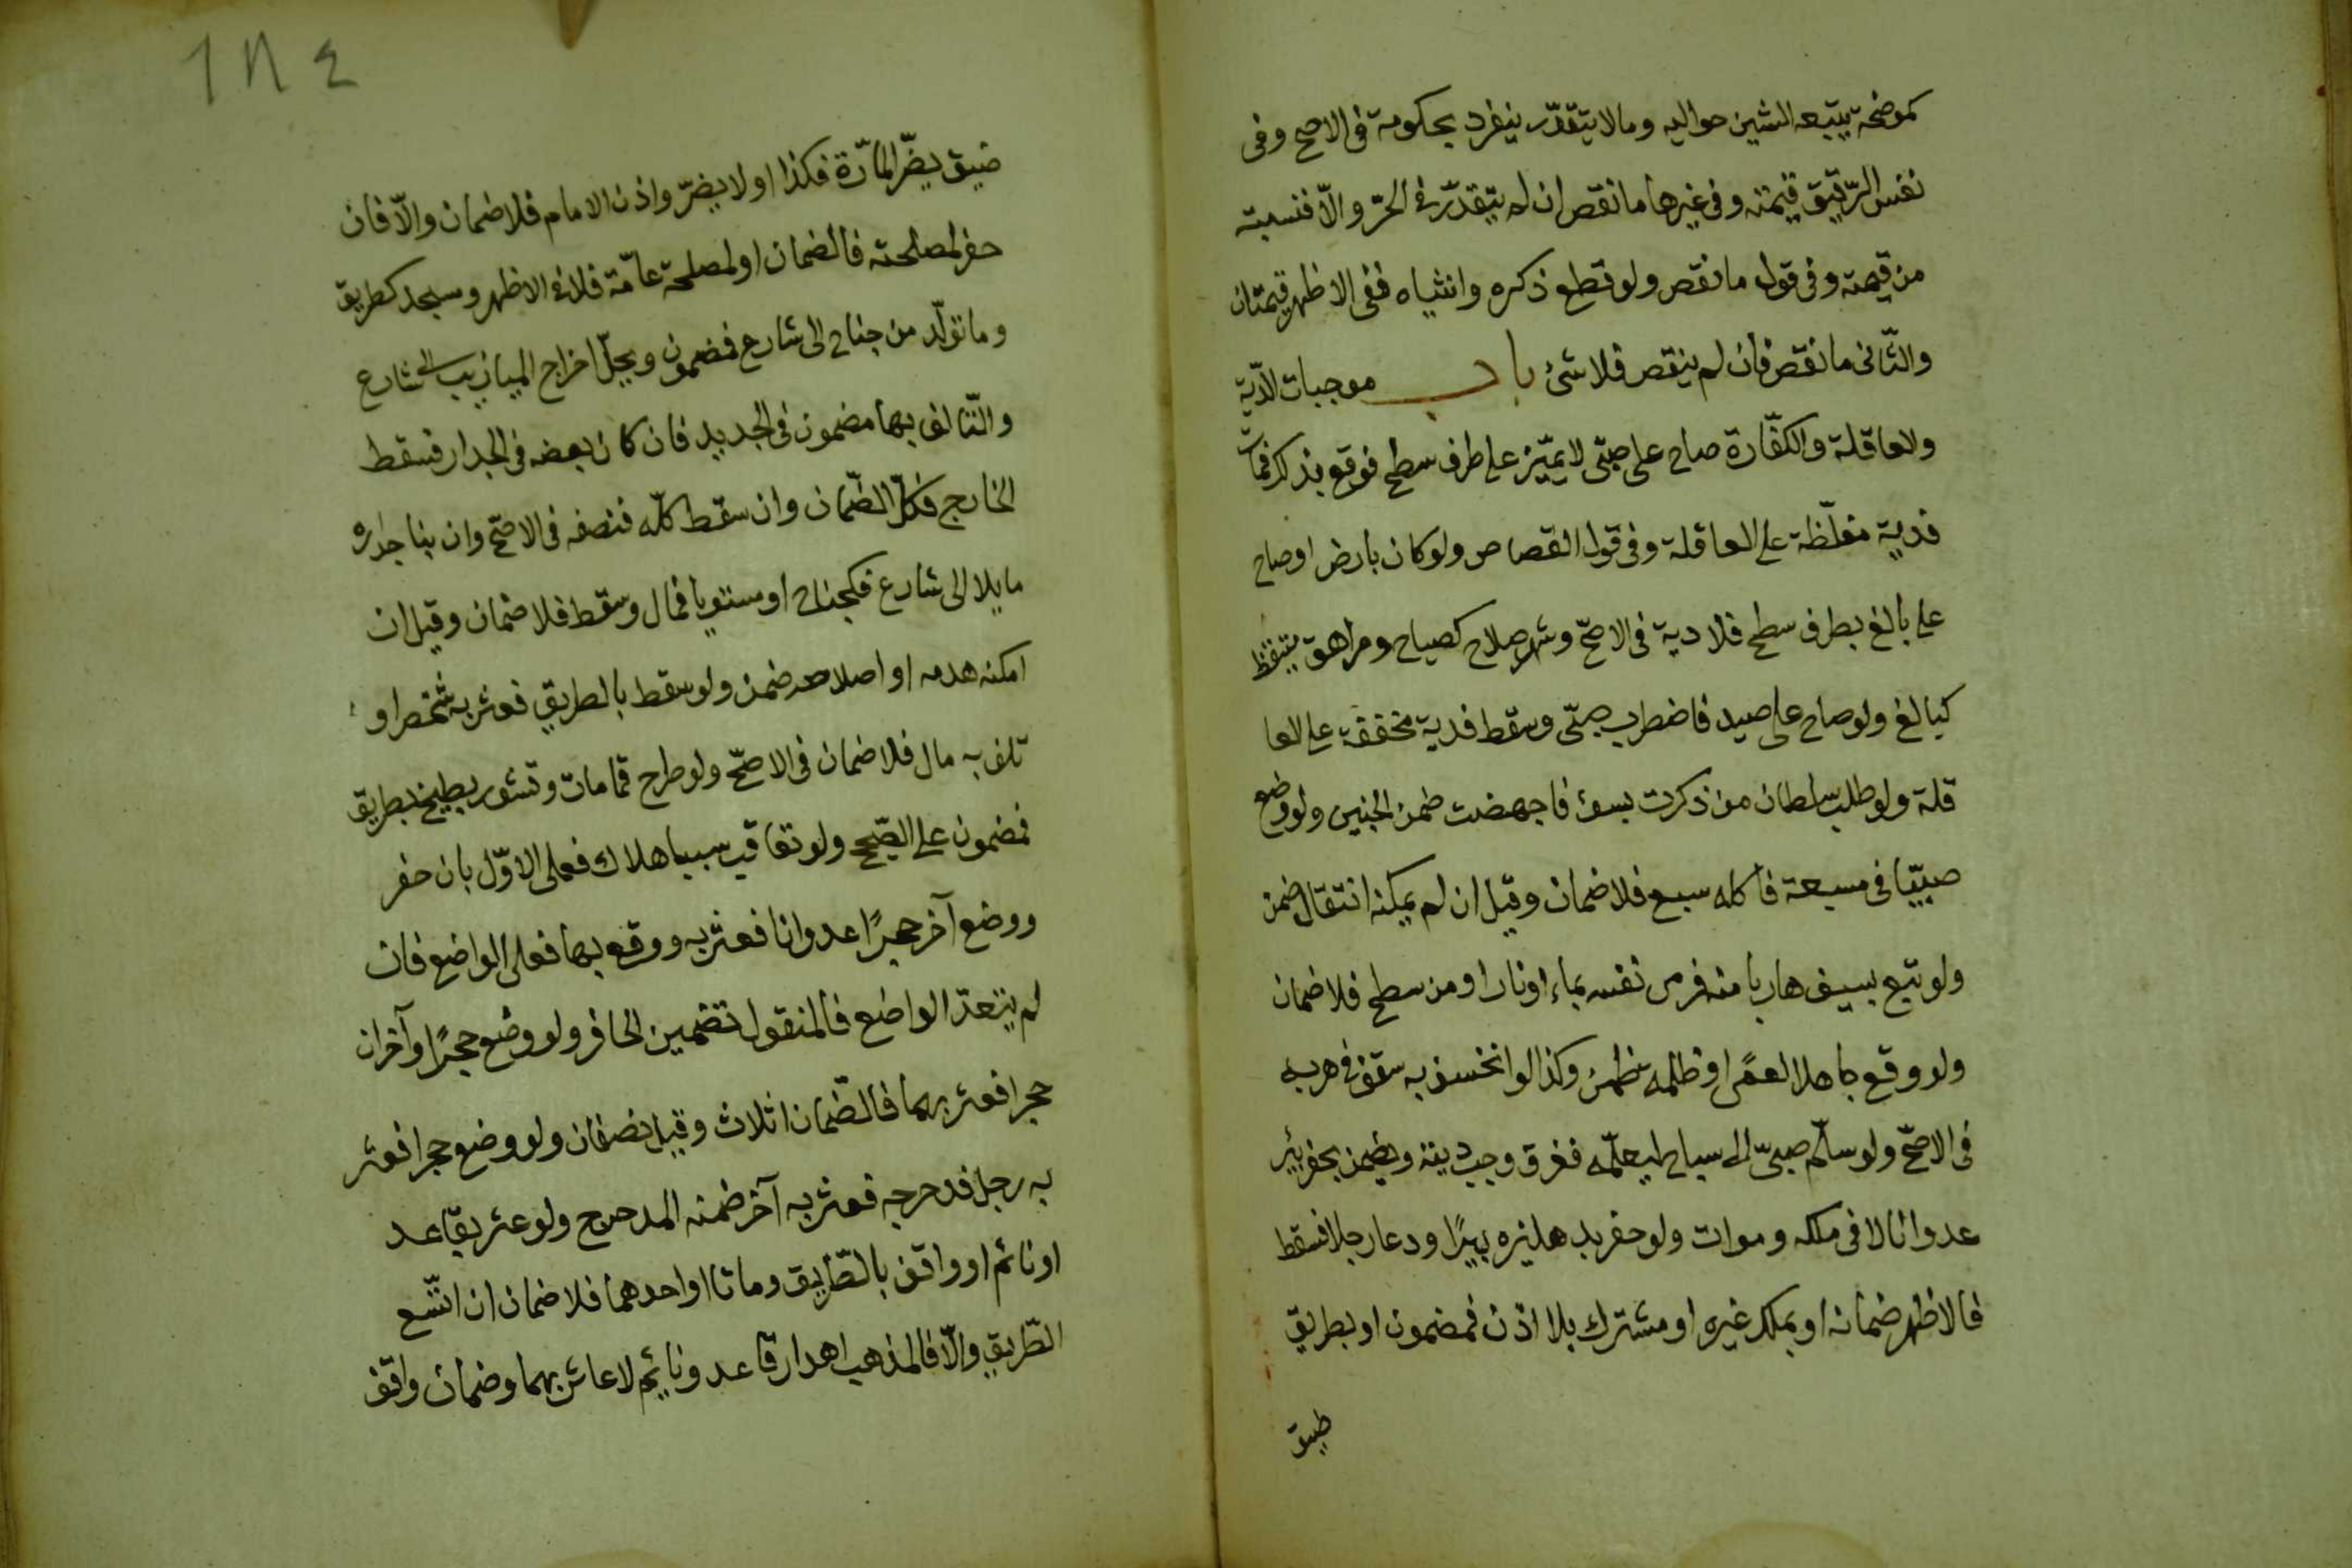 كموضحة يتبعه الشين حواليه ومالا يتقدّر ينفرد بحكومة فى الاصح وفى
نفس الرّقيق قيمته وفى غيرها ما نقص ان لم يتقدّر فى الحرّ والّا فنسبته
من قيمته وفى قول ما نقص ولو قطع ذكره وانثياه ففى الاظهر قيمتان
والثّانى ما نقص فان لم ينقص فلا شئ باب موجبات الدّية
والعاقلة والكفّارة صاح على صبّى لا يميّز على طرف سطح فوقع بذلك فمات
فدية مغلّظة على العاقلة وفى قول القصاص ولو كان بارض او صاح
على بالغ بطرف سطح فلا دية فى الاصحّ وشهر سلاح كصياح ومراهق متيقظ
كبالغ ولو صاح على صيد فاضطرب صبّى وسقط فدية مخففة على العا
قلة ولو طلب سلطان من ذكرت بسوء فاجهضت ضمن الجنين ولو وضع
صبيّا فى مسبعة فاكله سبع فلا ضمان وقيل ان لم يمكنه انتقال ضمن
ولو تبع بسيف هاربا منه فرمى نفسه بماء او نار او من سطح فلا ضمان
ولو وقع جاهلا لعمًى او ظلمه ضمن وكذا لو انخسف به سقف فى هربه
فى الاصحّ ولو سلّم صبىّ الى سباح ليعلّمه فغرق وجب ديته ويضمن بحفر بئر
عدوانا لا فى ملكه وموات ولو حفر بدهليزه بيرًا ودعا رجلا فسقط
فالاظهر ضمانه او بملك غيره او مشترك بلا اذن فمضمون او بطريق
ضيق
١٨٤
ضيق يضّر المارّة فكذا او لا يضرّ واذن الامام فلا ضمان والّا فان
حفر لمصلحته فالضمان او لمصلحة عامّة فلا فى الاظهر ومسجد كطريق
وما تولّد من جناح الى شارع فمضمون ويحلّ اخراج الميازيب الى شارع
والتّالف بها مضمون فى الجديد فان كان بعضه فى الجدار فسقط
الخارج فكلّ الضّمان وان سقط كلّه فنصفه فى الاصحّ وان بنا جداره
مايلا الى شارع فكجناح او مستويا فمال وسقط فلا ضمان وقيل ان
امكنه هدمه او اصلاحه ضمن ولو سقط بالطريق فعثر به شخص او
تلف به مال فلا ضمان فى الاصحّ ولو طرح قمامات وقشور بطيخ بطريق
فمضمون على الصّحيح ولو تعاقب سببا هلاك فعلى الاوّل بان حفر
ووضع آخر حجرًا عدوانا فعثر به ووقع بها فعلى الواضع فان
لم يتعدّ الواضع فالمنقول تضمين الحافر ولو وضع حجرًا وآخران
حجرا فعثر بهما فالضّمان اثلاث وقيل نصفان ولو وضع حجرا فعثر
به رجل فدحرجه فعثر به آخر ضمنه المدحرج ولو عثر بقاعد
او نائم او واقف بالطّريق وماتا او احدهما فلا ضمان ان اتّسع
الطّريق والّا فالمذهب اهدار قاعد ونائم لا عاثر بهما وضمان واقف